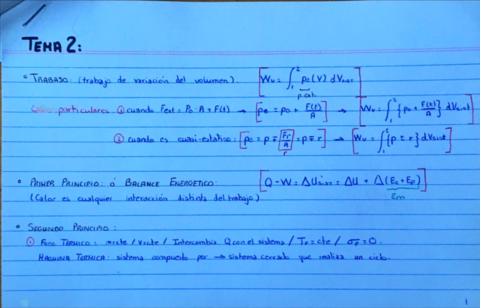 TEMA 2:
• TRABAJO: (trabajo de variación del volumen). [Wv = ∫₁² pe(V) dVsist]
p ext
Casos particulares: ① cuando Fext = P0·A + F(t) → [pe = p0 + F(t)/A] → [Wv = ∫₁² {p0 + F(t)/A} dVsist]
② cuando es cuasi-estático: [pe = p ∓ Fr/A = p ∓ r] → [Wv = ∫₁² {p ∓ r} dVsist]
r
• PRIMER PRINCIPIO: ó BALANCE ENERGÉTICO: [Q - W = ΔUsist = ΔU + Δ(Ec + Ep)]
(Calor es cualquier interacción distinta del trabajo) Em
• SEGUNDO PRINCIPIO:
① FOCO TÉRMICO: m=cte / V=cte / Intercambia Q con el sistema / TF = cte / σF = 0.
MÁQUINA TÉRMICA: sistema compuesto por → sistema cerrado que realiza un ciclo.
1